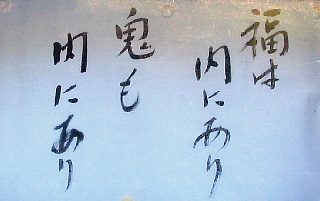 福は
内にあり
鬼も
内にあり